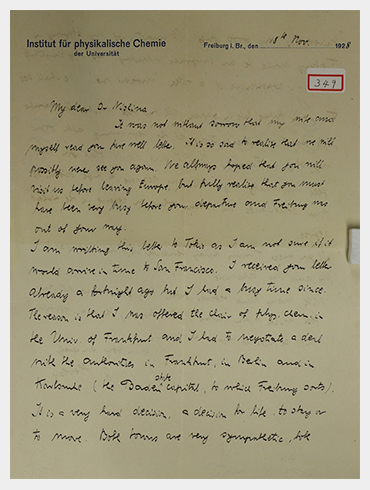 Institut für physikalische Chemie
der Universität
Freiburg i. Br., den 18th Nov. 1928
349
My dear Dr Nishina,
It was not without sorrow that my wife and
myself read you farewell letter. It is so sad to realise that we will
possibly never see you again. We allways hoped that you will
visit us before leaving Europe, but fully realise that you must
have been very busy before you departure and Freiburg was
out of your way.
I am writing this letter to Tokio as I am not sure if it
would arrive in time to San Francisco. I received your letter
allready a fortnight ago but I had a busy time since.
The reason is that I was offered the chair of phys. chem. in
the Univ. of Frankfurt and I had to negotiate a deal
with the authorities in Frankfurt, in Berlin and in
Karlsruhe (the Baden state capital, to which Freiburg sorts).
It is a very hard decision, a decision for life, to stay or
to move. Both towns are very sympathetic, both